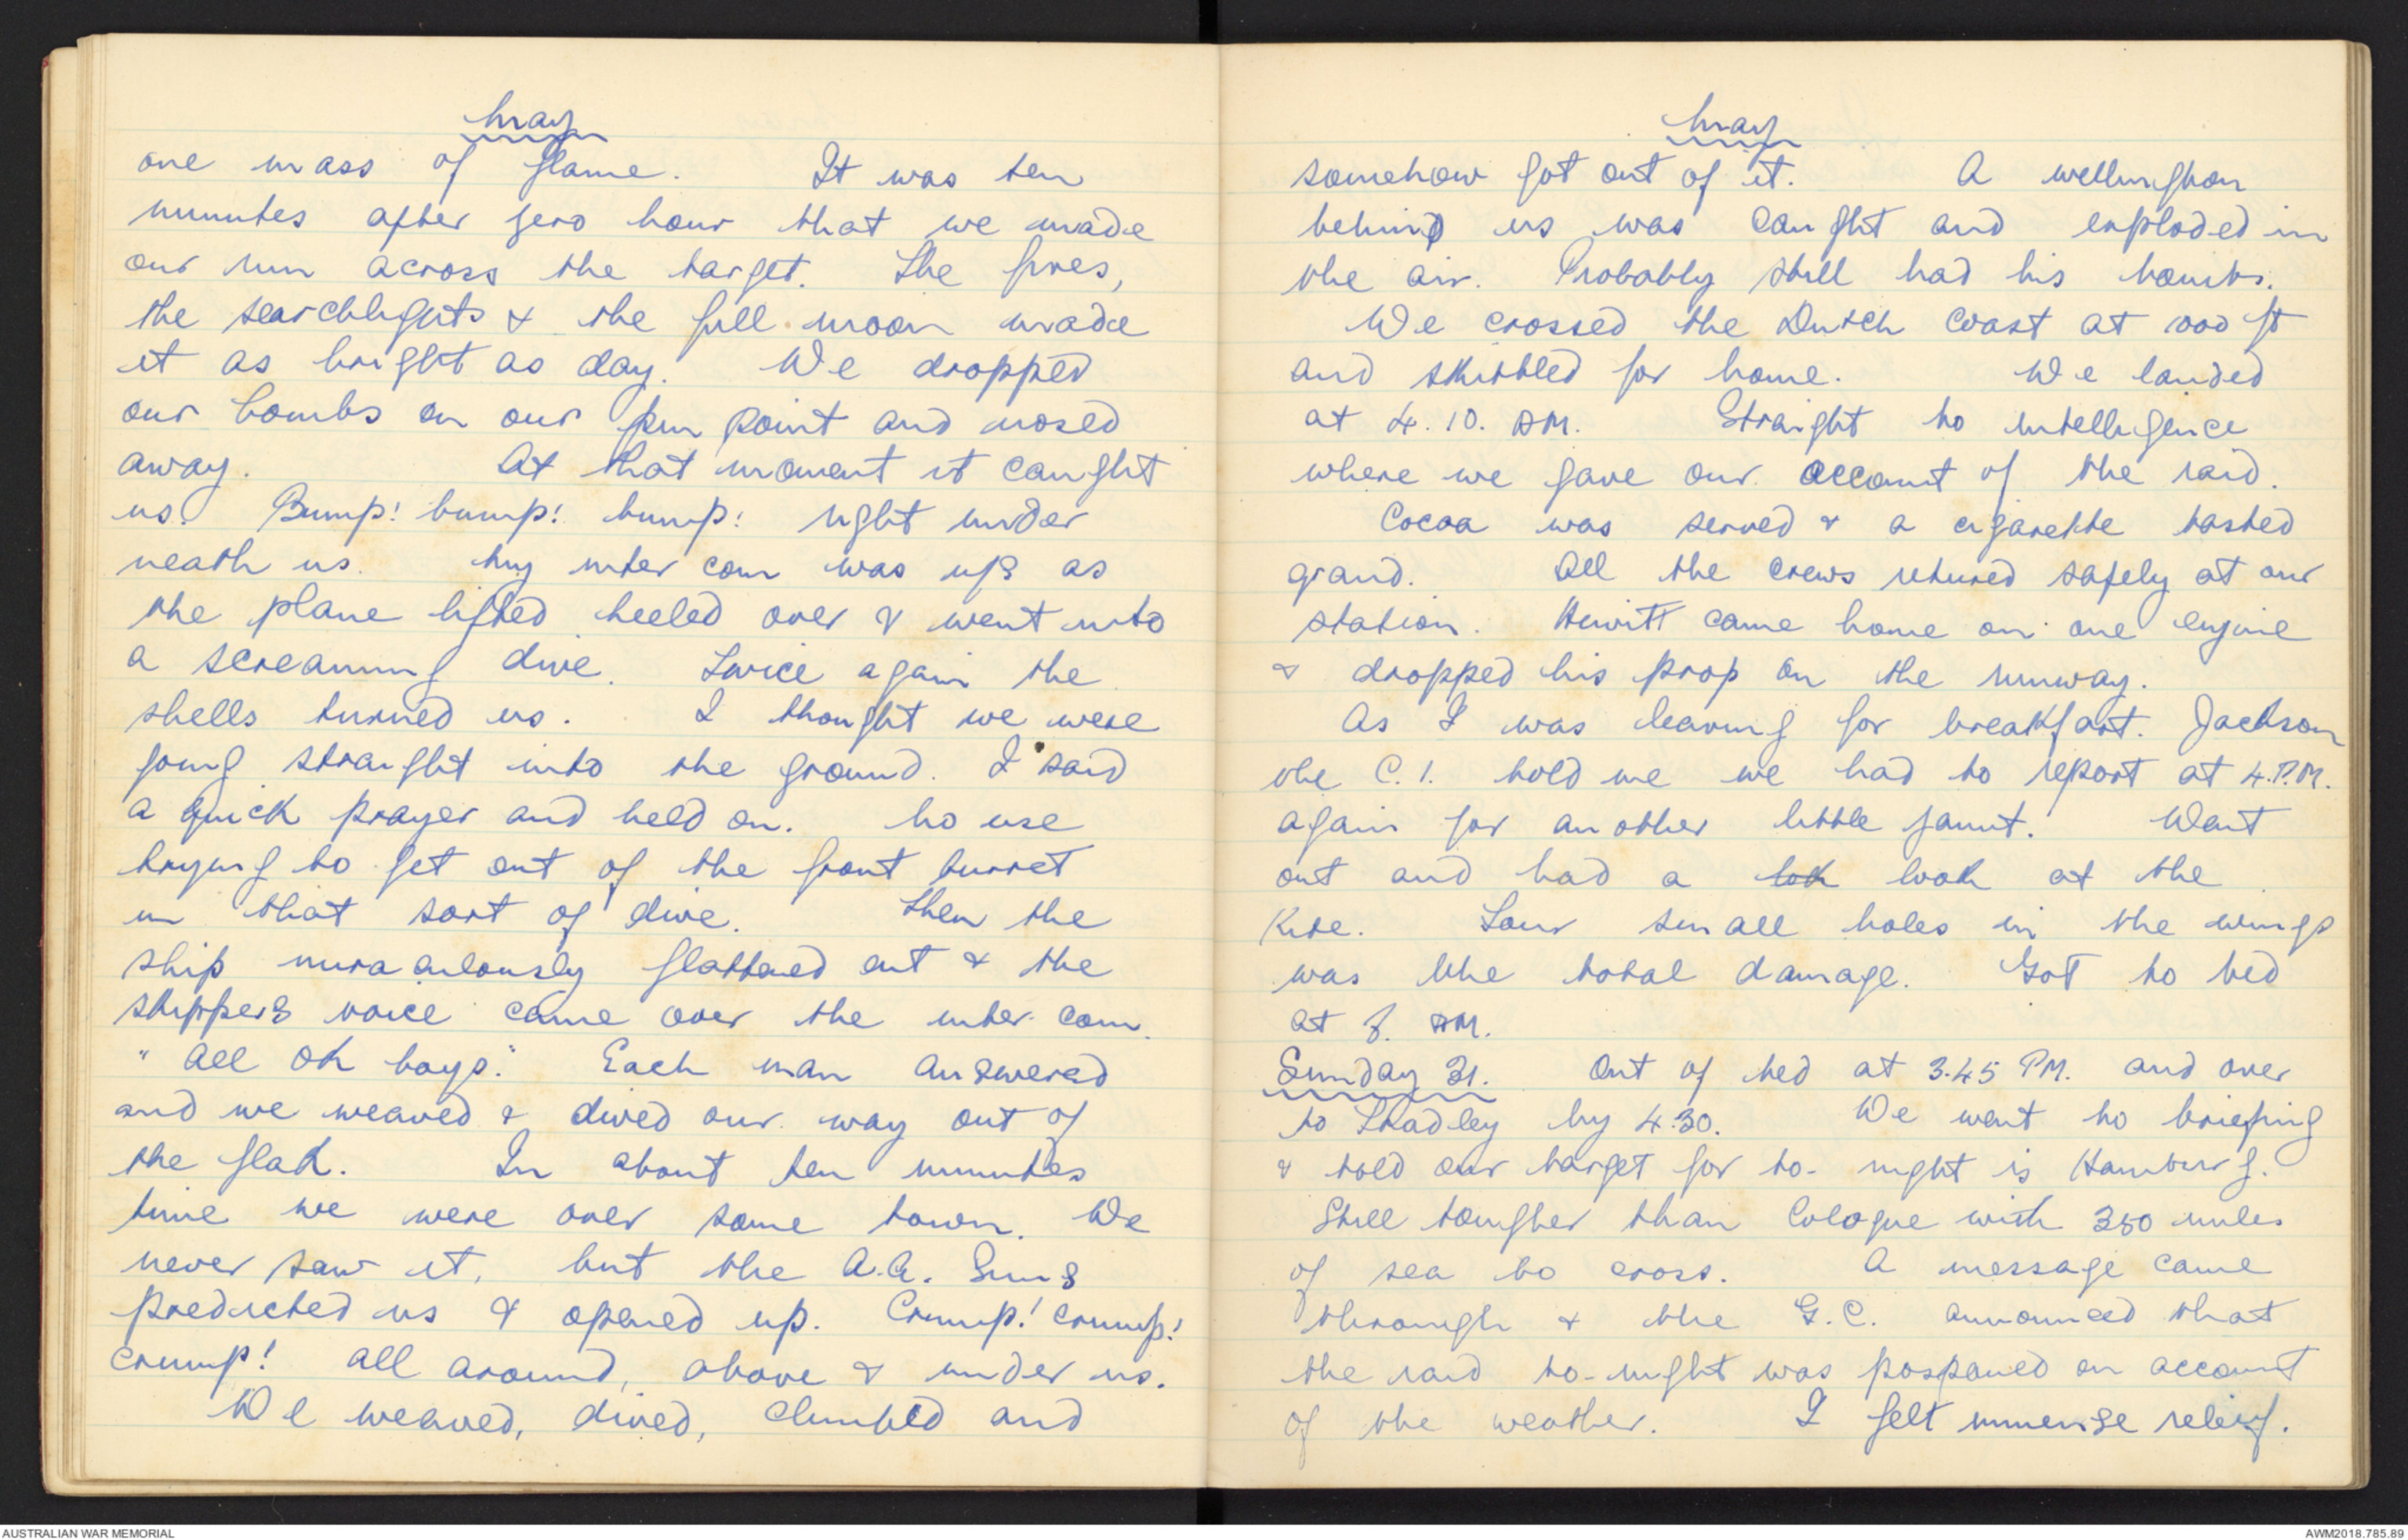 May
one mass of flame. It was ten
minutes after zero hour that we made
our run across the target. The fires,
the searchlights & the full moon made
it as bright as day. We dropped
our bombs on our pin point and nosed
away. At that moment it caught
us. Bump! bump! bump! right under
neath us. My inter com was u/s as
the plane lifted heeled over & went into
a screaming dive. Twice again the
shells turned us. I thought we were
going straight into the ground. I said
a quick prayer and held on. No use
trying to get out of the front turret
in that sort of dive. Then the
ship miraculously flattened out & the
skippers voice came over the inter com.
"All OK boys." Each man answered
and we weaved & dived our way out of
the flak. In about ten minutes
time we were over some town. We
never saw it, but the A.A. Guns
predicted us & opened up. Crump! crump!
crump! all around, above & under us.
We weaved, dived, climbed and
May
somehow got out of it. A wellington
behind us was caught and exploded in
the air. Probably still had his bombs.
We crossed the Dutch Coast at 1000 ft
and skittled for home. We landed
at 4.10. AM. Straight to intelligence
where we gave our account of the raid.
Cocoa was served & a cigarette tasted
grand. All the crews retured safely at our
station. Hewitt came home on one engine
& dropped his prop on the runway.
As I was leaving for breakfast. Jackson
the C.I. told me we had to report at 4.P.M.
again for another little jaunt. Went
out and had a lok look at the
Kite. Four small holes in the wings
was the total damage. Got to bed
at 8. AM.
Sunday 31. Out of bed at 3.45 PM. and over
to Stradley by 4.30. We went to briefing
& told our target for to-night is Hamburg.
Still tougher than Cologne with 350 miles
of sea to cross. A message came
through & the G.C. announced that
the raid to-night was pospaned on account
of the weather. I felt immense relief.
AUSTRALIAN WAR MEMORIAL
AWM2018.785.89